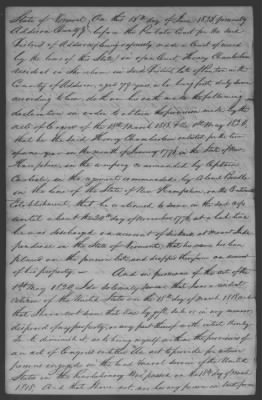 State of Vermont, On this 15th day of June 1820 personally
Addison County before the Probate Court for the said
District of Addison being expressly made a Court of record
by the laws of this State, in open Court, Henry Chamberlain
resident in in said District, in the
County of Addison, aged 77 years, who being first duly sworn
according to law, doth on his oath make the following
declaration in order to obtain the provision made by the
act of Congress of the 18th March 1818 & the 1st May 1820,
that he the said Henry Chamberlain enlisted for the term
of one year in the month of January 1776, in the State of New
Hampshire, in the company commanded by Captain
in the regiment commanded by
in the line of the State of New Hampshire, on the Continental
Establishment, that he continued to serve in the said
until about the 20th day of December 1776, at which time
he was discharged on account of sickness at Mount Inde-
pendence in the State of Vermont, that his name has been
placed on the pension list and dropped therefrom on account
of his property — And in pursuance of the act of the
1st May 1820, I do solemnly swear that I was a resident
citizen of the United States on the 18th day of March 1818 and
that I have not since that time by gift, sale or in any manner
disposed of my property, or any part thereof with intent thereby
so to diminish it, as to bring myself within the provisions of
an act of Congress entitled An act to provide for certain
persons engaged in the land & naval service of the United
States in the Revolutionary War passed on the 18th day of March
1818. And that I have not nor has any person in trust for me